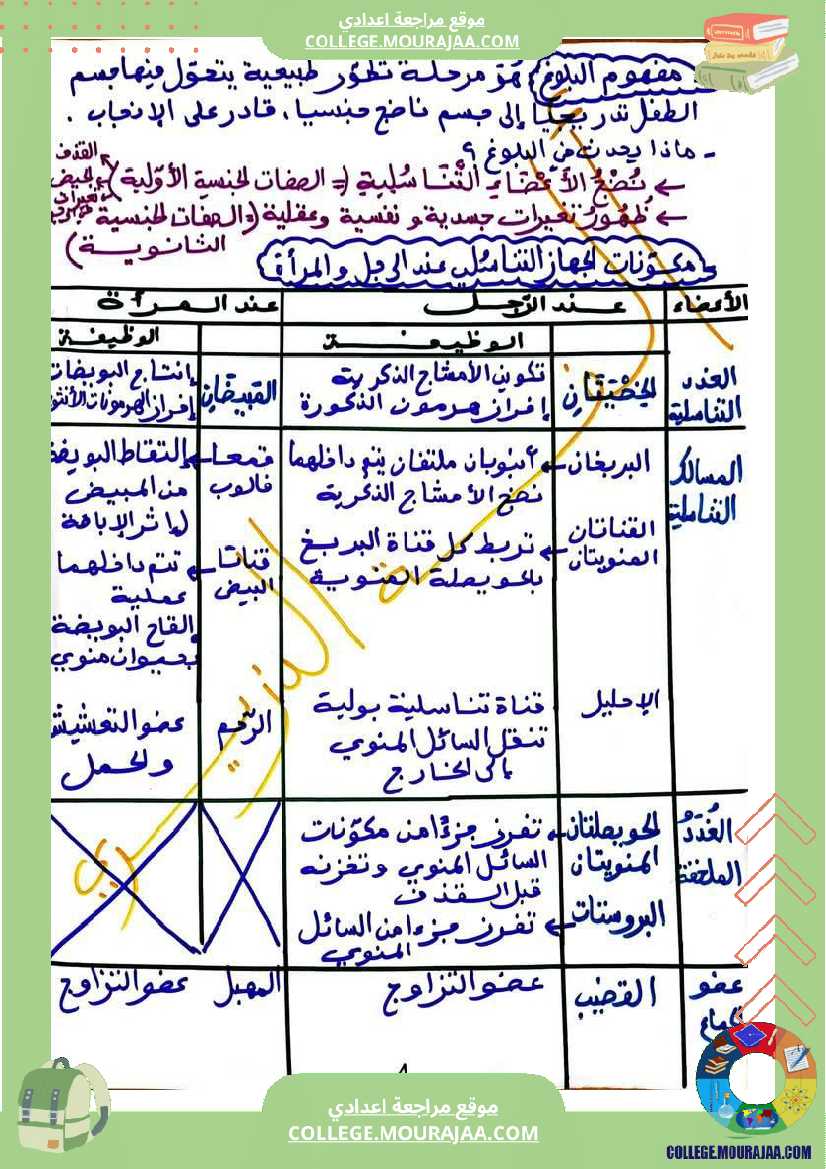 موقع مراجعة اعدادي
COLLEGE.MOURAJAA.COM
مفهوم البلوغ: هو مرحلة تطوّر طبيعية يتحوّل فيها جسم
الطفل تدريجيّا إلى جسم ناضج جنسيا، قادر على الإنجاب .
- ماذا يحدث في البلوغ ؟
← نُضْجُ الأعْضَاءِ التّنَاسُلِيّةِ (= الصفات الجنسية الأوّلية) القذف
الحيض
← ظُهُورُ تغيرات جسدية و نفسية وعقلية (= الصفات الجنسية
الثانويــة)
مكوّنات الجهاز التناسلي عند الرجل والمرأة
الأعضاء عنــد الرّجــل عند المــرأة
الوظيفــة الوظيفــة
الغدد التناسلية
الخصْيَتَانِ
تكوين الأمشاج الذكرية
إفراز هرمون الذكورة
المبيضَانِ
إنتاج البويضات
إفراز الهرمونات
المسالك التناسلية
البربخان ← أنبوبان ملتفان يتم داخلهما
نضج الأمشاج الذكرية
القناتان المنويتان ← تربط كل قناة البربخ
بالحويصلة المنوية
الإحليل
قناة تناسلية بولية
تنقل السائل المنوي
إلى الخارج
قمعا فالوب ← التقاط البويضة
من المبيض
إثر الإباضة
قناتا البيض ← تتم داخلهما
عملية
إلقاح البويضة
بحيوان منوي
الرّحم
عضو التعشيش
والحمل
الغُدَدُ الملحقة
الحويصلتان المنويتان ← تفرز جزءًا من مكوّنات
السائل المنوي وتخزنه
قبل القذف
البروستات ← تفرز جزءا من السائل
المنوي
عضو الجماع
القضيب
عضو التزاوج
المهبل
عضو التزاوج
موقع مراجعة اعدادي
COLLEGE.MOURAJAA.COM
COLLEGE.MOURAJAA.COM